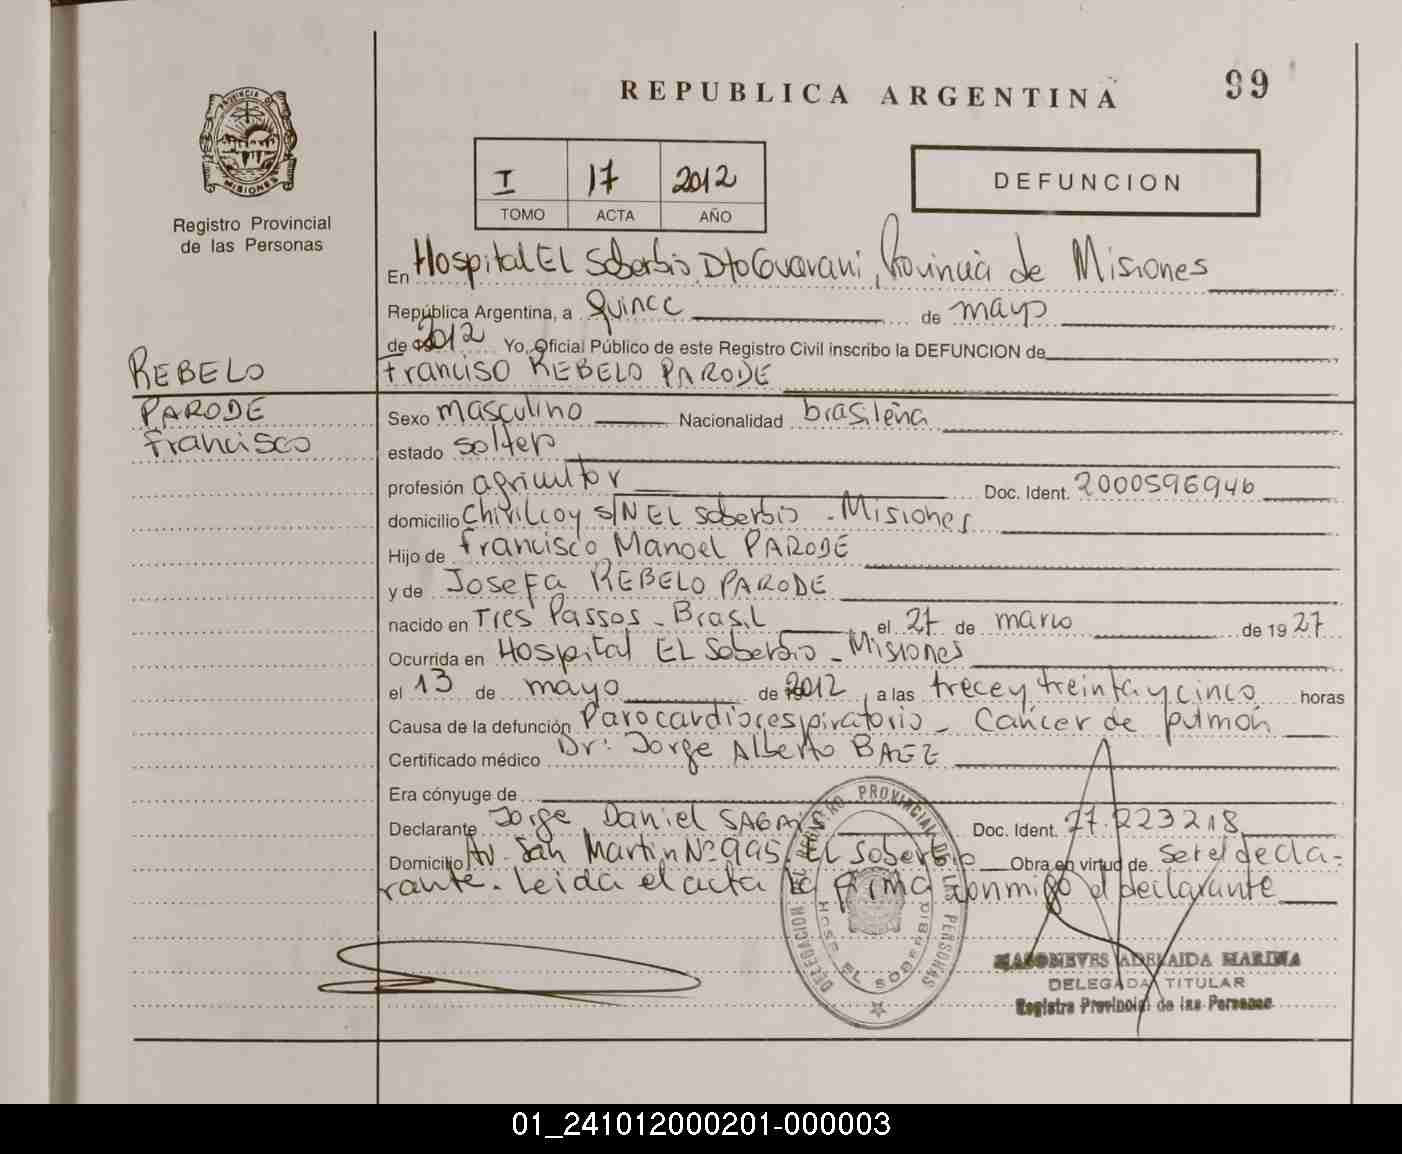 REPUBLICA ARGENTINA
99
PROVINCIA D
MISIONES
Registro Provincial
de las Personas
I 17 2012
TOMO ACTA AÑO
DEFUNCION
En Hospital El Soberbio, Dto Guarani, Provincia de Misiones
República Argentina, a quince de mayo
de 2012 Yo, Oficial Público de este Registro Civil inscribo la DEFUNCION de
REBELO
Franciso REBELO PARODE
PARODE
Sexo masculino Nacionalidad brasileña
Francisco
estado soltero
profesión agricultor Doc. Ident. 2000596946
domicilio Chivilcoy s/N EL Soberbio - Misiones
Hijo de Francisco Manoel PARODE
y de Josefa REBELO PARODE
nacido en Tres Passos - Brasil el 27 de marzo de 1927
Ocurrida en Hospital EL Soberbio - Misiones
el 13 de mayo de 2012, a las trece y treinta y cinco horas
Causa de la defunción Parocardiorespiratorio - Cancer de pulmón
Certificado médico Dr: Jorge Alberto BAEZ
Era cónyuge de
Declarante Jorge Daniel Doc. Ident. 27.223218
Domicilio Av. San Martin Nº 995. EL Soberbio Obra en virtud de ser el decla-
rante. Leida el acta la firma conmigo el declarante
REGISTRO PROVINCIAL DE LAS PERSONAS
DELEGACION
HOSP. EL SOBERBIO
ADELAIDA MARINA
DELEGADA TITULAR
Registro Provincial de las Personas
01_241012000201-000003